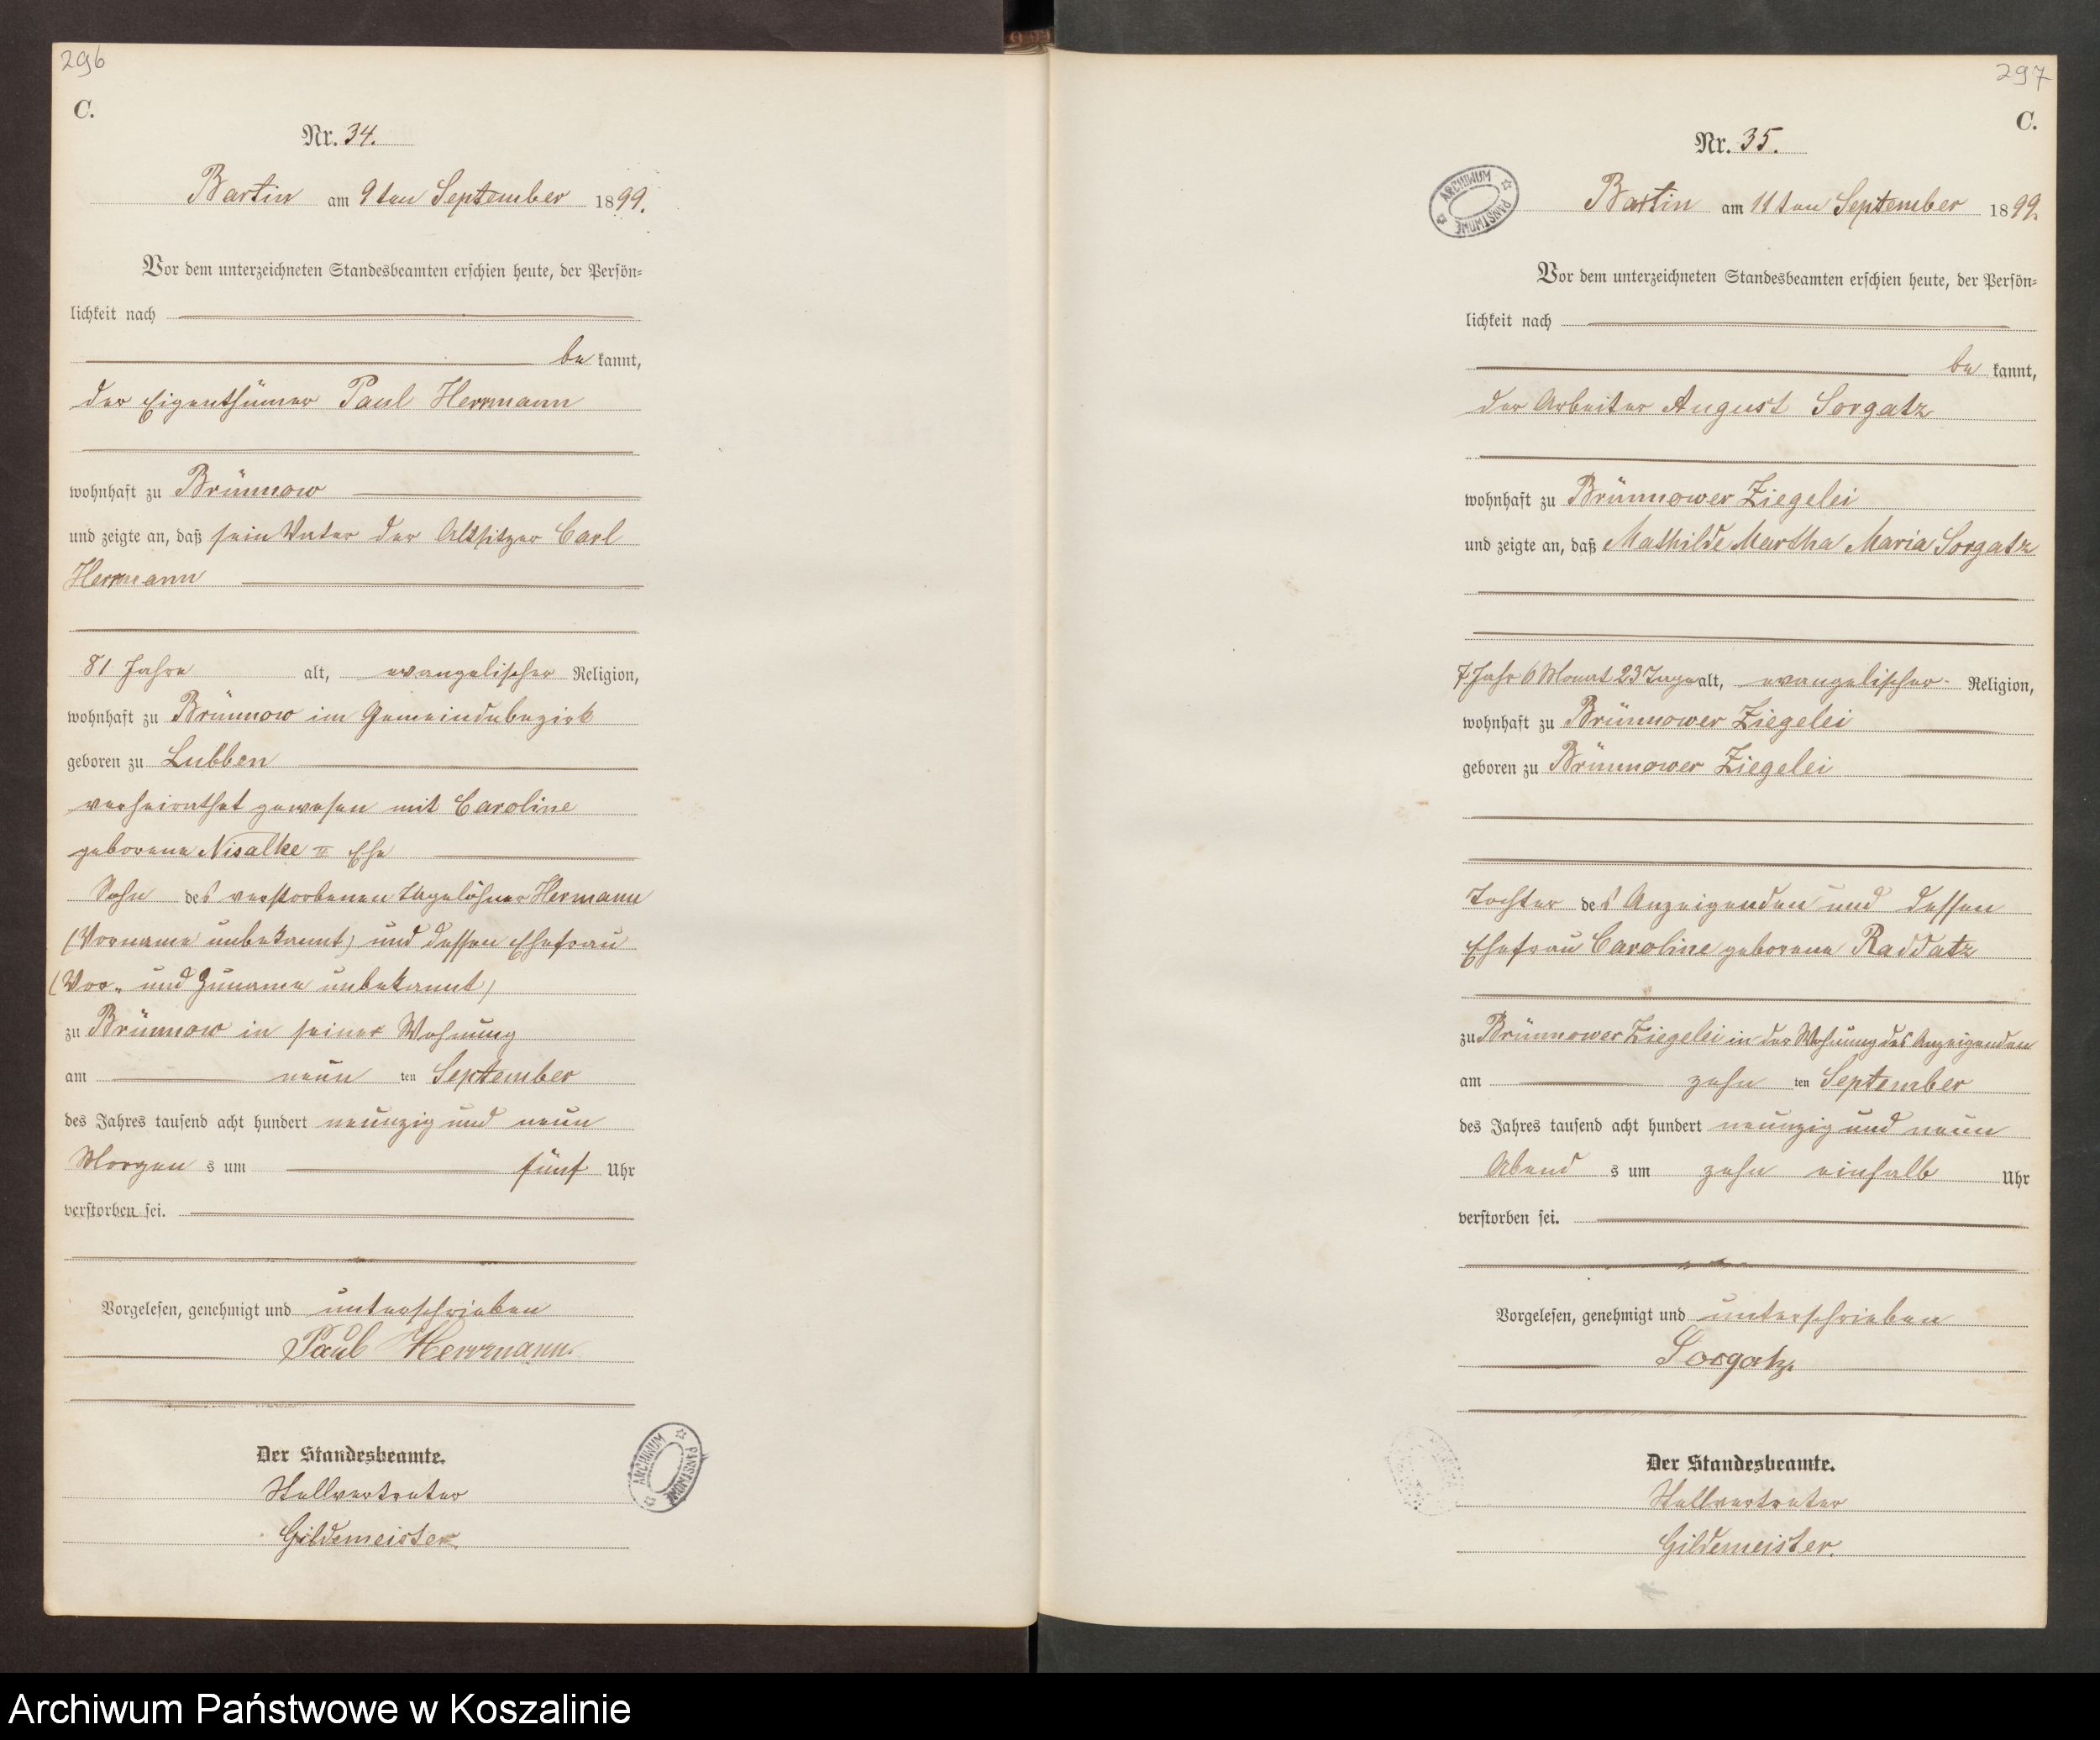 296
C.
Nr. 34.
Bartin am 9ten September 1899.
Vor dem unterzeichneten Standesbeamten erschien heute, der Persön-
lichkeit nach
be kannt,
der Eigenthümer Paul Herrmann
wohnhaft zu Brünnow
und zeigte an, daß sein Vater der Altsitzer Carl
Herrmann
81 Jahre alt, evangelischer Religion,
wohnhaft zu Brünnow im Gemeindebezirk
geboren zu Lubben
verheirathet gewesen mit Caroline
geborene Nisalke II Ehe
Sohn des verstorbenen Tagelöhner Hermann
(Vorname unbekannt) und dessen Ehefrau
(Vor- und Zuname unbekannt)
zu Brünnow in seiner Wohnung
am neun ten September
des Jahres tausend acht hundert neunzig und neun
Morgen s um fünf Uhr
verstorben sei.
Vorgelesen, genehmigt und unterschrieben
Paul Herrmann.
Der Standesbeamte.
Stellvertreter
Gildemeister.
ARCHIWUM PAŃSTWOWE
297
C.
Nr. 35.
ARCHIWUM PAŃSTWOWE
Bartin am 11ten September 1899.
Vor dem unterzeichneten Standesbeamten erschien heute, der Persön-
lichkeit nach
be kannt,
der Arbeiter August Sorgatz
wohnhaft zu Brünnower Ziegelei
und zeigte an, daß Mathilde Martha Maria Sorgatz
7 Jahr 6 Monat 23 Tage alt, evangelischer Religion,
wohnhaft zu Brünnower Ziegelei
geboren zu Brünnower Ziegelei
Tochter des Anzeigenden und dessen
Ehefrau Caroline geborene Raddatz
zu Brünnower Ziegelei in der Wohnung des Anzeigenden
am zehn ten September
des Jahres tausend acht hundert neunzig und neun
Abend s um zehn einhalb Uhr
verstorben sei.
Vorgelesen, genehmigt und unterschrieben
Sorgatz.
Der Standesbeamte.
Stellvertreter
Gildemeister.
Archiwum Państwowe w Koszalinie